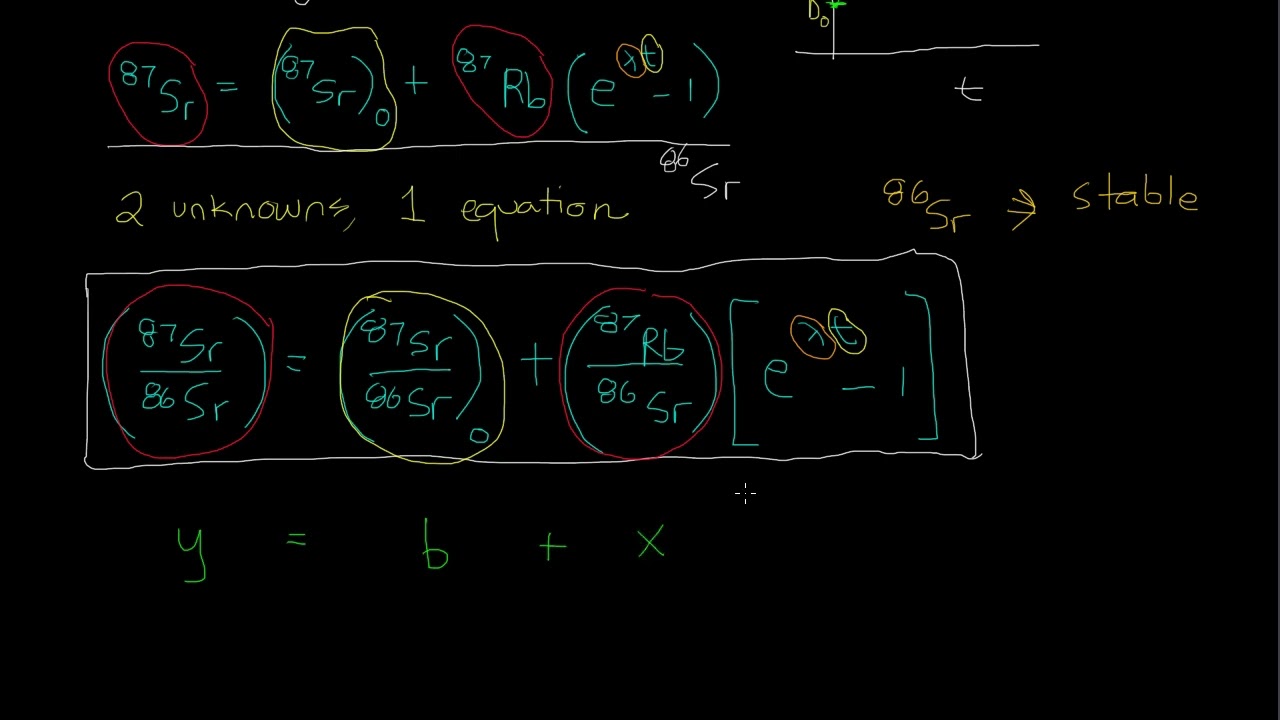 D₀
⁸⁷Sr = (⁸⁷Sr)₀ + ⁸⁷Rb (e^λt - 1)
t
⁸⁶Sr
2 unknowns, 1 equation
⁸⁶Sr ⇒ stable
(⁸⁷Sr/⁸⁶Sr) = (⁸⁷Sr/⁸⁶Sr)₀ + (⁸⁷Rb/⁸⁶Sr) [e^λt - 1]
y = b + x